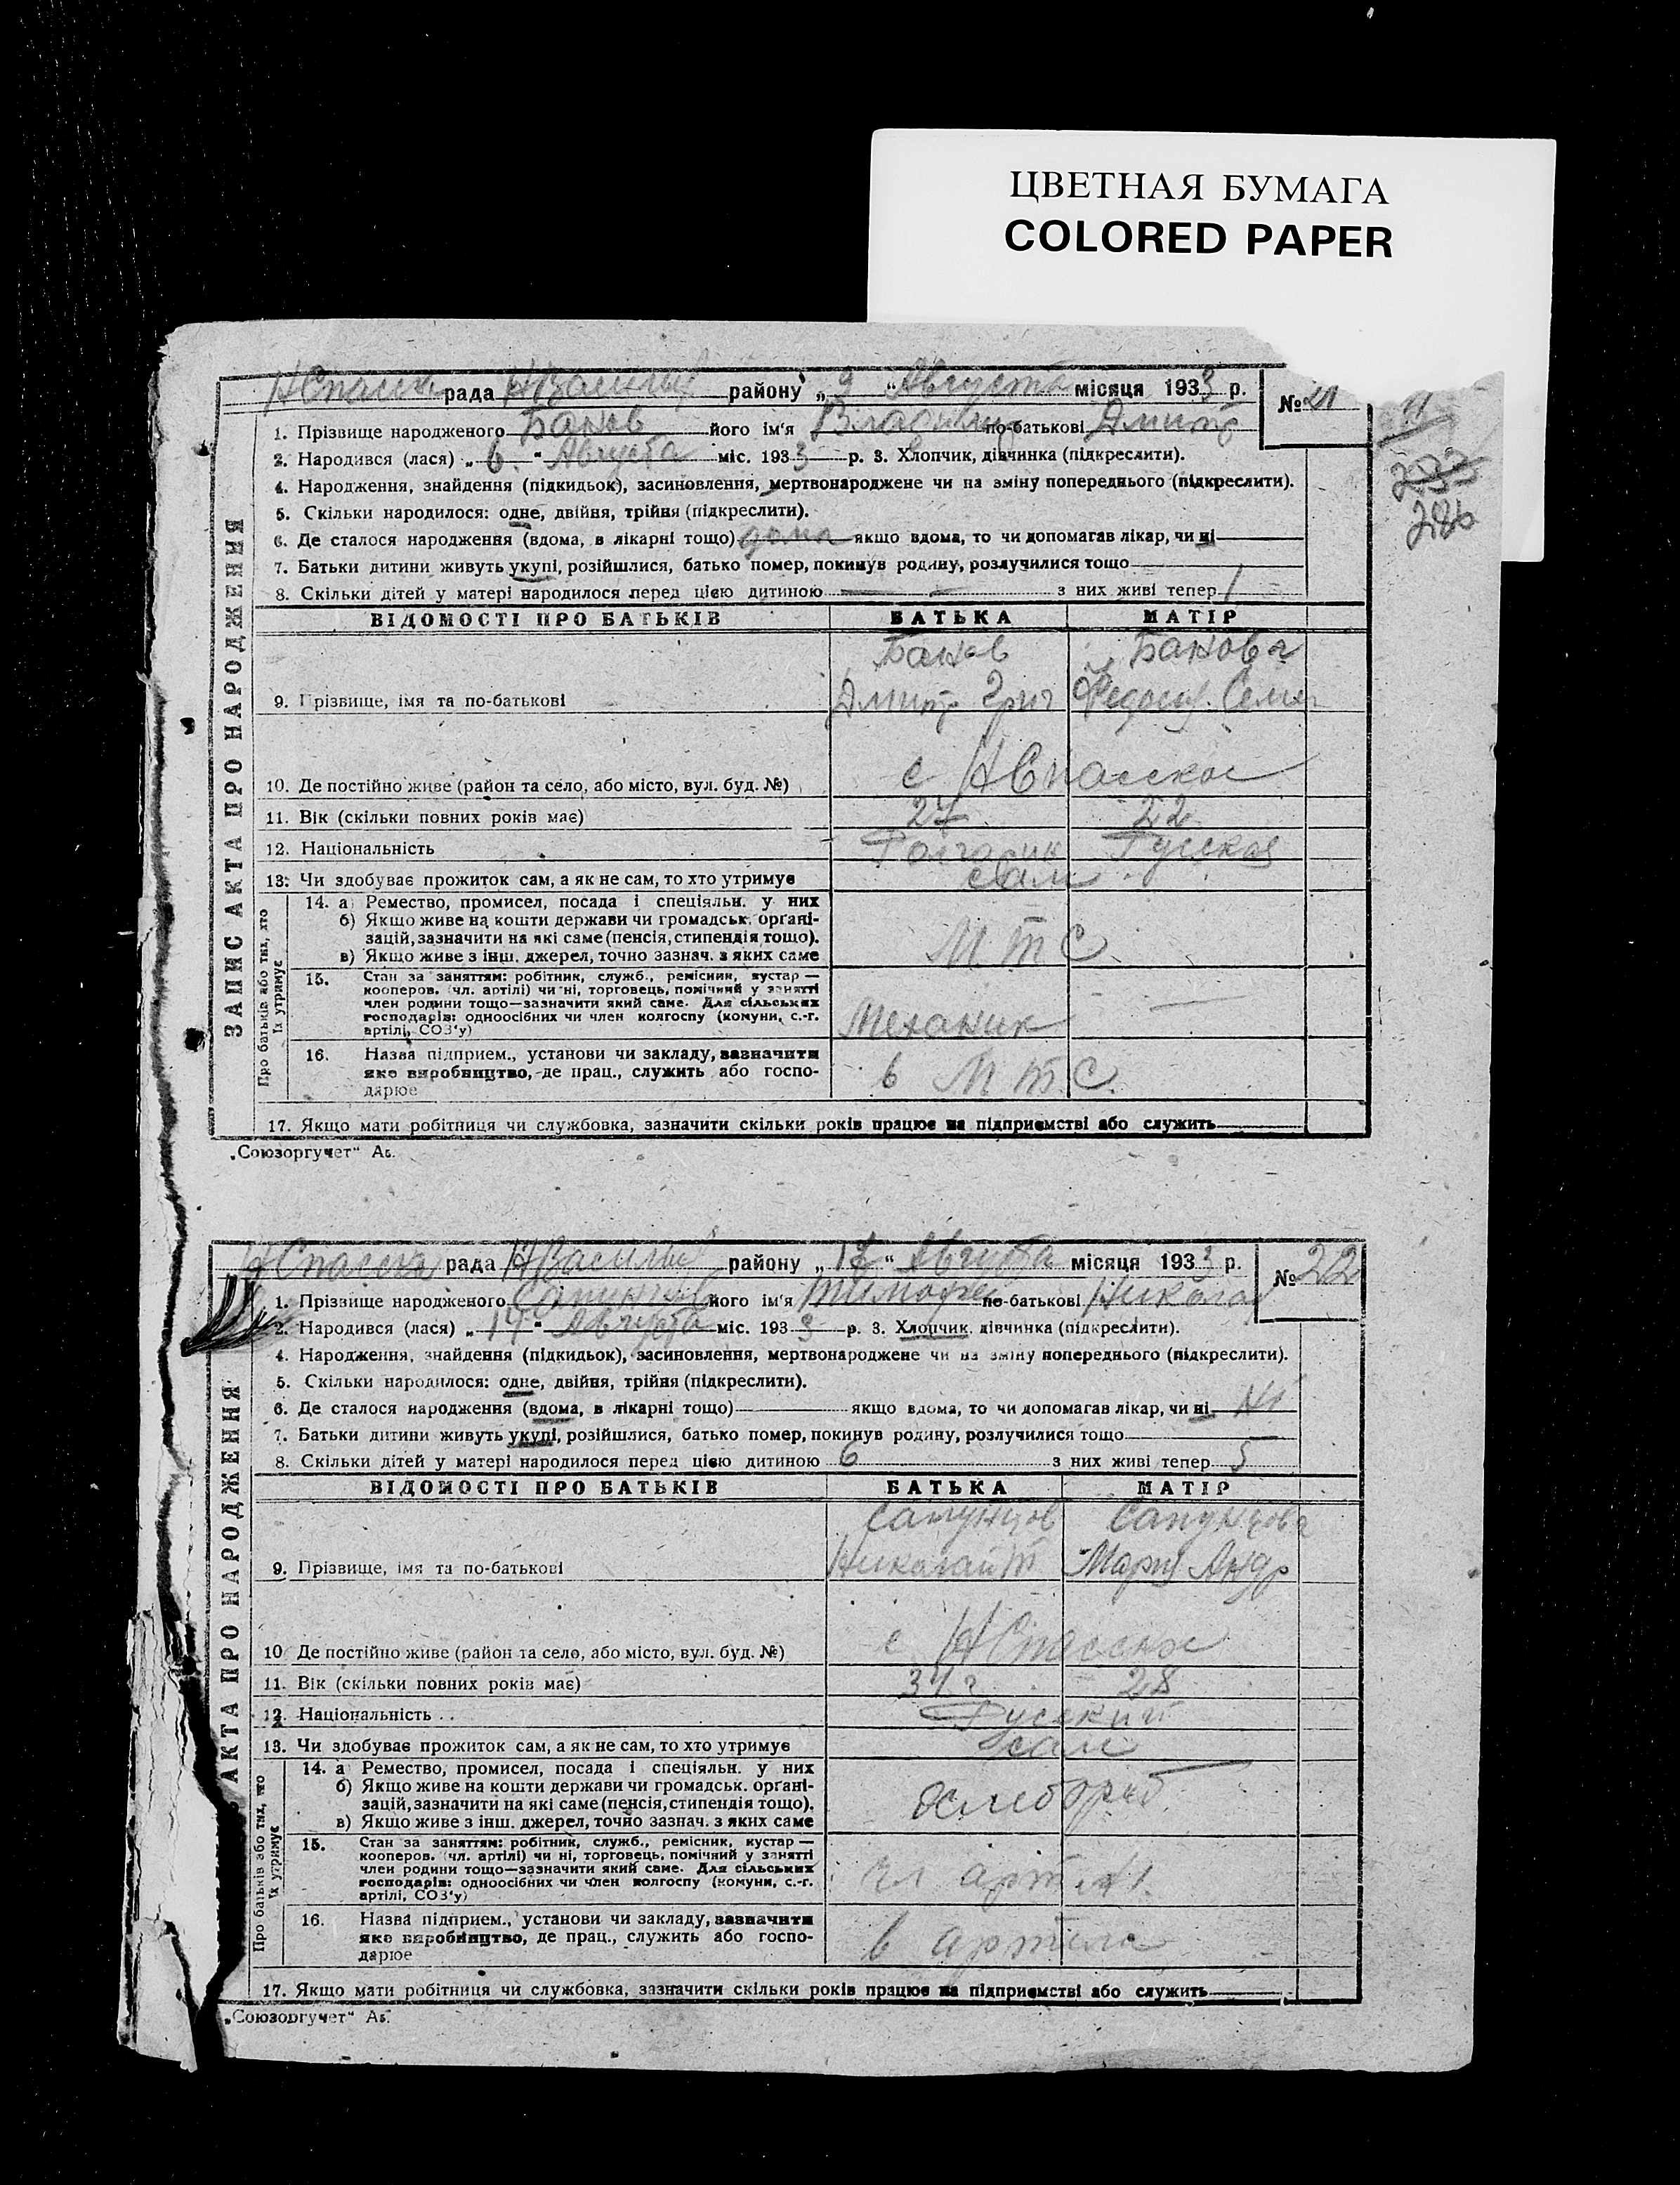 ЦВЕТНАЯ БУМАГА
COLORED PAPER
НСпасска рада НВасилів району „9“ Августа місяця 1933 р. № 21
1. Прізвище народженого Банов його ім'я Владимир по-батькові Дмитр
2. Народився (лася) „6.“ Августа міс. 1933 р. 3. Хлопчик, дівчинка (підкреслити).
4. Народження, знайдення (підкидьок), засиновлення, мертвонароджене чи на зміну попереднього (підкреслити).
5. Скільки народилося: одне, двійня, трійня (підкреслити).
6. Де сталося народження (вдома, в лікарні тощо) дома якщо вдома, то чи допомагав лікар, чи ні
7. Батьки дитини живуть укупі, розійшлися, батько помер, покинув родину, розлучилися тощо
8. Скільки дітей у матері народилося перед цією дитиною — з них живі тепер 1
286
ЗАПИС АКТА ПРО НАРОДЖЕННЯ
ВІДОМОСТІ ПРО БАТЬКІВ БАТЬКА МАТІР
Банов Банова
9. Прізвище, імя та по-батькові Дмитр Григ Федось. Семен
10. Де постійно живе (район та село, або місто, вул. буд. №) с НСпасское
11. Вік (скільки повних років має) 27 22
12. Національність Болгарин Русская
13. Чи здобуває прожиток сам, а як не сам, то хто утримує сам
Про батьків або тих, хто їх утримує
14. а) Ремество, промисел, посада і спеціяльн. у них
б) Якщо живе на кошти держави чи громадськ. органі-
зацій, зазначити на які саме (пенсія, стипендія тощо).
в) Якщо живе з інш. джерел, точно зазнач. з яких саме М.Т.С.
15. Стан за заняттям: робітник, служб., ремісник, кустар —
кооперов. (чл. артілі) чи ні, торговець, помічний у занятті
член родини тощо—зазначити який саме. Для сільських
господарів: одноосібних чи член колгоспу (комуни, с.-г.
артілі, СОЗ'у) Механик —
16. Назва підприєм., установи чи закладу, зазначити
яке виробництво, де прац., служить або госпо-
дарює в М.Т.С.
17. Якщо мати робітниця чи службовка, зазначити скільки років працює на підприємстві або служить
„Союзоргучет“
НСпасска рада НВасилів району „17“ Августа місяця 1933 р. № 22
1. Прізвище народженого Сапунцов його ім'я Тимофей по-батькові Никола
2. Народився (лася) „17“ Августа міс. 1933 р. 3. Хлопчик, дівчинка (підкреслити).
4. Народження, знайдення (підкидьок), засиновлення, мертвонароджене чи на зміну попереднього (підкреслити).
5. Скільки народилося: одне, двійня, трійня (підкреслити).
6. Де сталося народження (вдома, в лікарні тощо) якщо вдома, то чи допомагав лікар, чи ні Ні
7. Батьки дитини живуть укупі, розійшлися, батько помер, покинув родину, розлучилися тощо
8. Скільки дітей у матері народилося перед цією дитиною 6 з них живі тепер 5
АКТА ПРО НАРОДЖЕННЯ
ВІДОМОСТІ ПРО БАТЬКІВ БАТЬКА МАТІР
Сапунцов Сапунцова
9. Прізвище, імя та по-батькові Николай Т Мария Андр
10 Де постійно живе (район та село, або місто, вул. буд. №) с НСпасское
11. Вік (скільки повних років має) 31 г 28
12. Національність Русский
13. Чи здобуває прожиток сам, а як не сам, то хто утримує сам
Про батьків або тих, хто їх утримує
14. а Ремество, промисел, посада і спеціяльн. у них
б) Якщо живе на кошти держави чи громадськ. органі-
зацій, зазначити на які саме (пенсія, стипендія тощо).
в) Якщо живе з інш. джерел, точно зазнач. з яких саме
15. Стан за заняттям: робітник, служб., ремісник, кустар —
кооперов. (чл. артілі) чи ні, торговець, помічний у занятті
член родини тощо—зазначити який саме. Для сільських
господарів: одноосібних чи член колгоспу (комуни, с.-г.
артілі, СОЗ'у) чл артілі.
16. Назва підприєм., установи чи закладу, зазначити
яке виробництво, де прац., служить або госпо-
дарює в артели
17. Якщо мати робітниця чи службовка, зазначити скільки років працює на підприємстві або служить
„Союзоргучет“